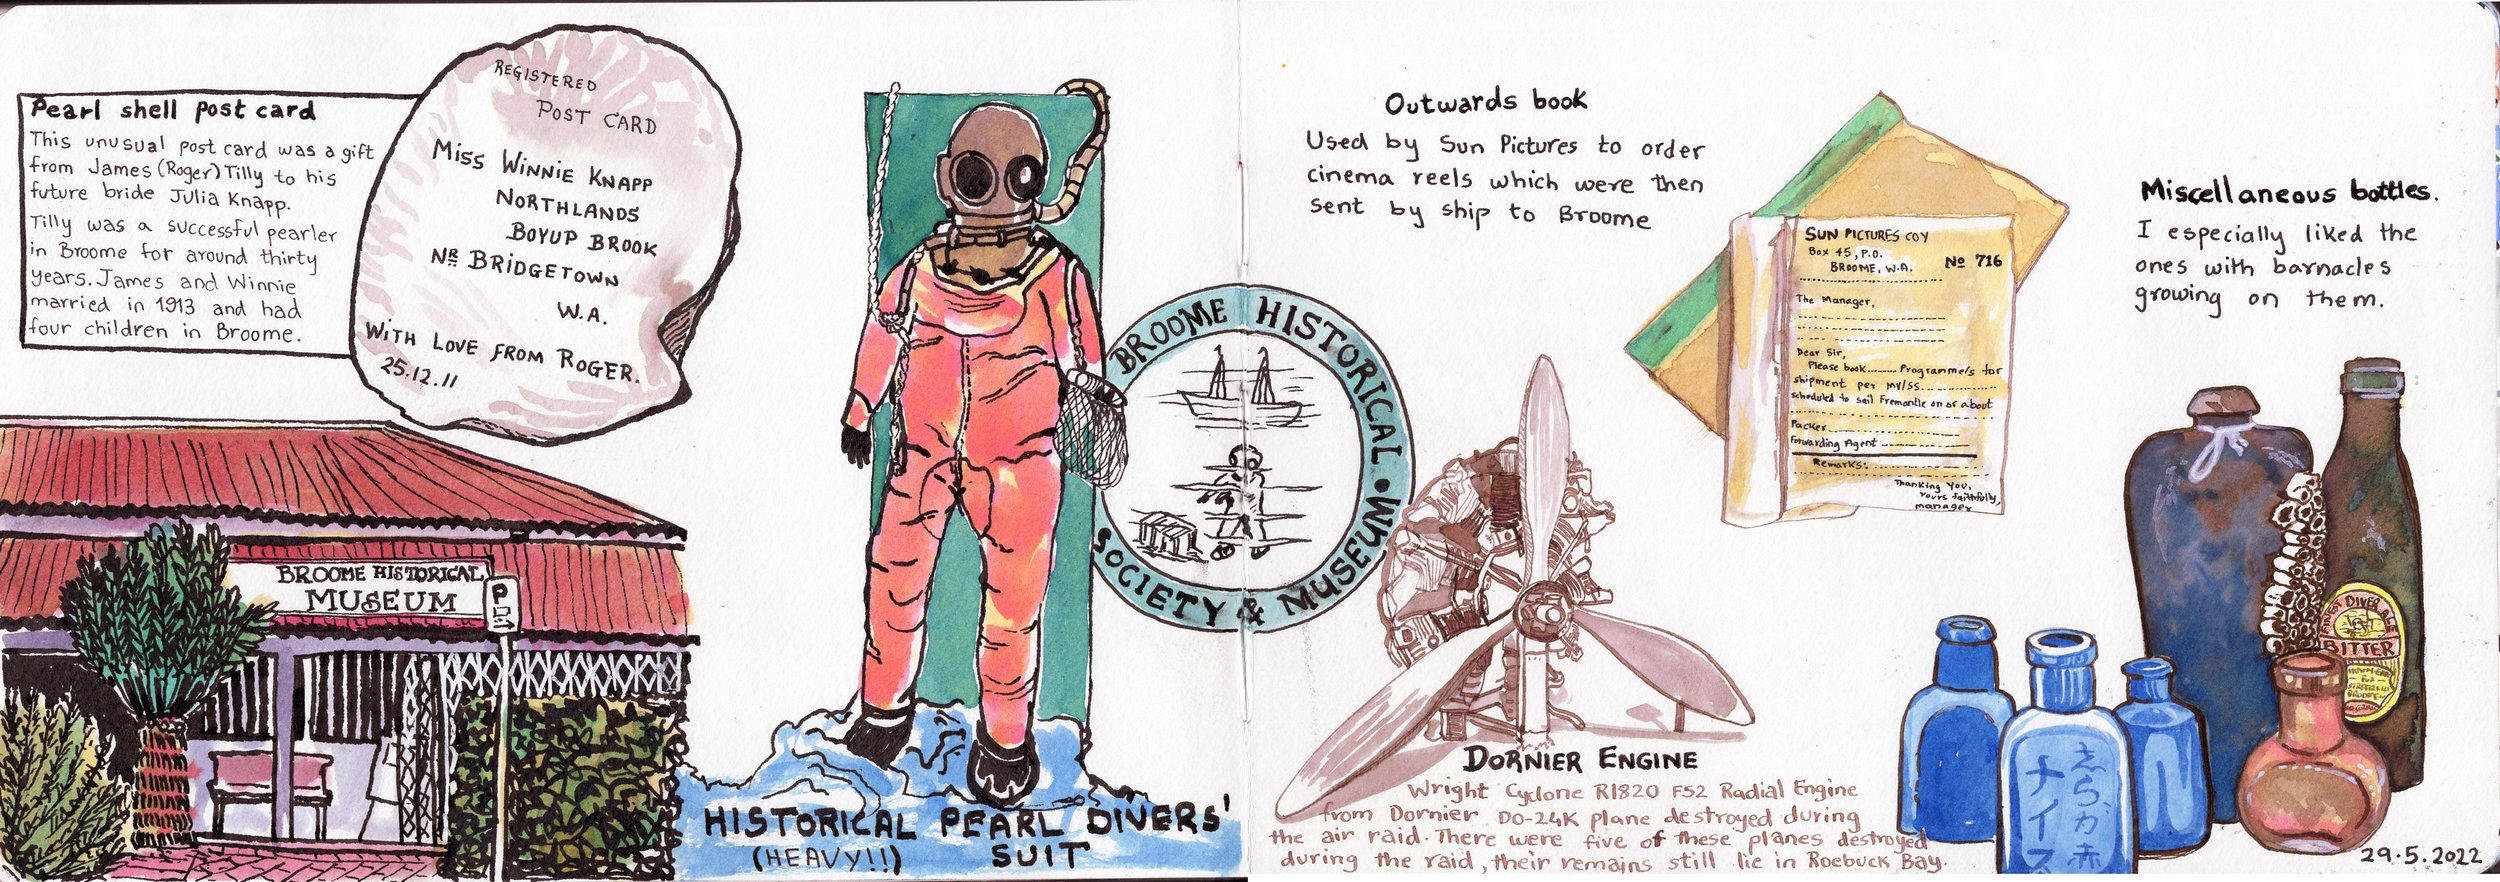 Pearl shell post card
This unusual post card was a gift
from James (Roger) Tilly to his
future bride Julia Knapp.
Tilly was a successful pearler
in Broome for around thirty
years. James and Winnie
married in 1913 and had
four children in Broome.
REGISTERED
POST CARD
MISS WINNIE KNAPP
NORTHLANDS
BOYUP BROOK
NR BRIDGETOWN
W.A.
WITH LOVE FROM ROGER.
25.12.11
BROOME HISTORICAL
MUSEUM
P
HISTORICAL PEARL DIVERS'
(HEAVY!!) SUIT
BROOME HISTORICAL
SOCIETY & MUSEUM
Outwards book
Used by Sun Pictures to order
cinema reels which were then
sent by ship to Broome
SUN PICTURES COY
Box 45, P.O.
BROOME, W.A.
No 716
The Manager,
Dear Sir,
Please book Programme/s for
shipment per MV/SS
scheduled to sail Fremantle on or about
Packer
Forwarding Agent
Remarks:
Thanking You,
Yours faithfully,
manager
DORNIER ENGINE
Wright Cyclone R1820 F52 Radial Engine
from Dornier DO-24K plane destroyed during
the air raid. There were five of these planes destroyed
during the raid, their remains still lie in Roebuck Bay.
Miscellaneous bottles.
I especially liked the
ones with barnacles
growing on them.
DIVER ALE
BITTER
ナイス
29.5.2022